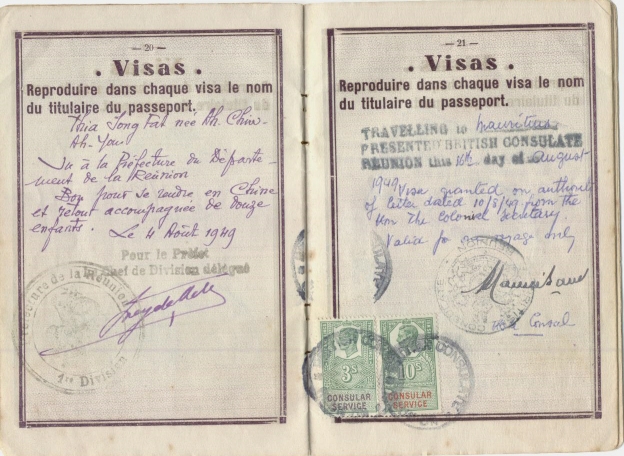 — 20 —
. Visas .
Reproduire dans chaque visa le nom
du titulaire du passeport.
Thia Song Fat née Ah. Chow-
Ah-You
Vu à la Préfecture du Départe-
ment de la Réunion
Bon pour se rendre en Chine
et retour accompagnée de douze
enfants. Le 4 Août 1949
Pour le Préfet
Le Chef de Division délégué
Préfecture de la Réunion
1re Division
— 21 —
. Visas .
Reproduire dans chaque visa le nom
du titulaire du passeport.
TRAVELLING to Mauritius
PRESENTED BRITISH CONSULATE
REUNION this 16th day of August
1949 Visa granted on authority
of letter dated 10/8/49 from the
Hon The Colonial Secretary.
Valid for one voyage only
Consul
3S
CONSULAR
SERVICE
10S
CONSULAR
SERVICE
CONSULATE